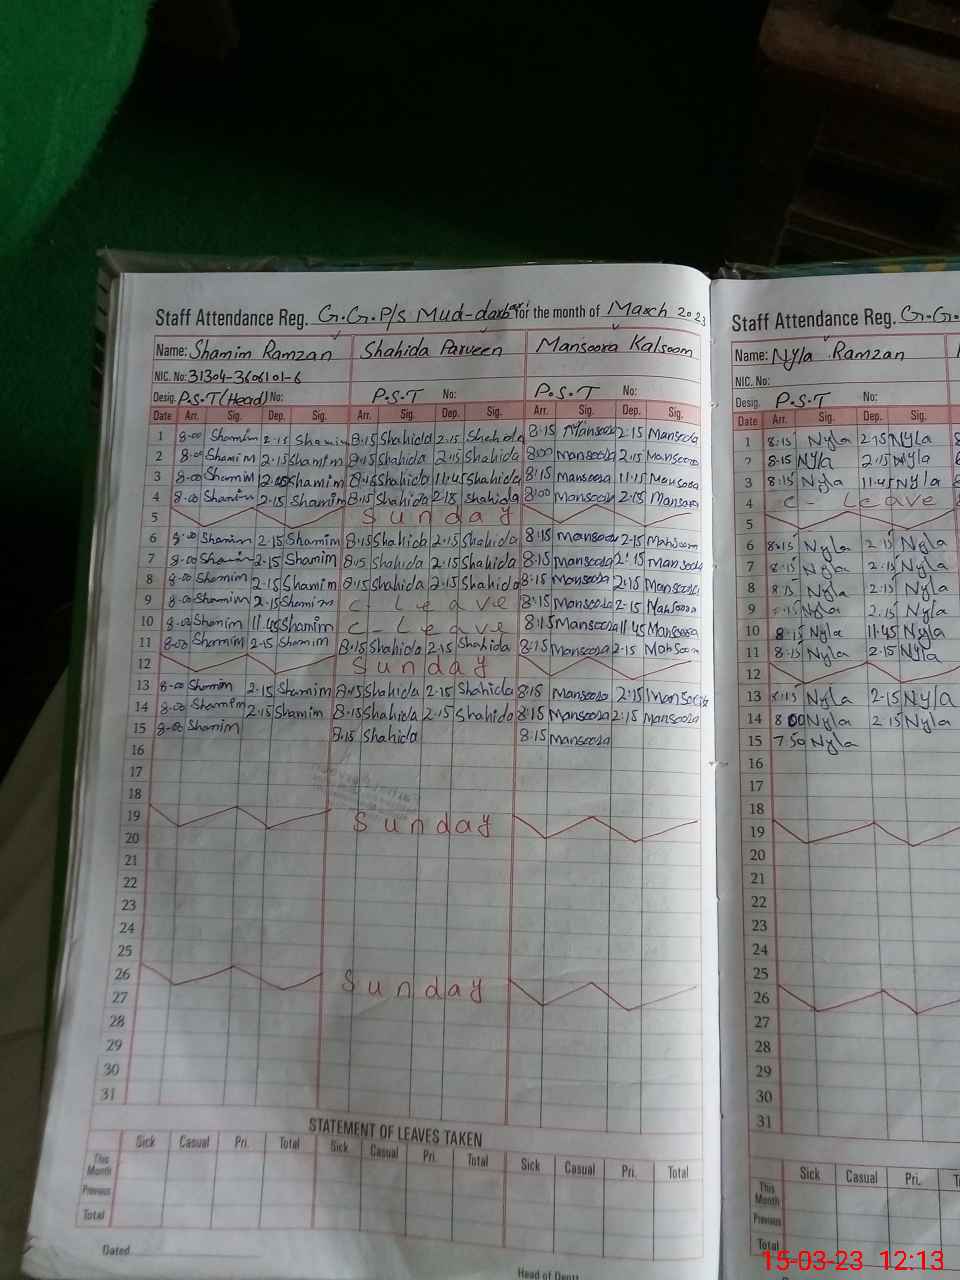 Staff Attendance Reg. G.G.P/S Mud-darbari for the month of March 2023
Name: Shamim Ramzan Shahida Parveen Mansoora Kalsoom
NIC. No: 31304-3606101-6
Desig. P.S.T (Head) No: P.S.T No: P.S.T No:
Date Arr. Sig. Dep. Sig. Arr. Sig. Dep. Sig. Arr. Sig. Dep. Sig.
1 8-00 Shamim 2-15 Shamim 8-15 Shahida 2-15 Shahida 8:15 Mansoora 2-15 Mansoora
2 8-00 Shamim 2-15 Shamim 8-15 Shahida 2-15 Shahida 8:00 Mansoora 2-15 Mansoora
3 8-00 Shamim Shamim 8-15 Shahida 11-45 Shahida 8:15 Mansoora Mansoora
4 8-00 Shamim 2-15 Shamim 8-15 Shahida 2-15 Shahida 8:00 Mansoora 2-15 Mansoora
5 Sunday
6 8-00 Shamim 2-15 Shamim 8-15 Shahida 2-15 Shahida 8:15 Mansoora 2-15 Mansoora
7 8-00 Shamim 2-15 Shamim 8-15 Shahida 2-15 Shahida 8:15 Mansoora 2-15 Mansoora
8 8-00 Shamim 2-15 Shamim 8-15 Shahida 2-15 Shahida 8-15 Mansoora 2-15 Mansoora
9 8-00 Shamim 2-15 Shamim C- Leave 8:15 Mansoora 2-15 Mansoora
10 8-00 Shamim 11-45 Shamim C- Leave 8:15 Mansoora 11-45 Mansoora
11 8-00 Shamim 2-15 Shamim 8-15 Shahida 2-15 Shahida 8:15 Mansoora 2-15 Mansoora
12 Sunday
13 8-00 Shamim 2-15 Shamim 8-15 Shahida 2-15 Shahida 8:15 Mansoora 2-15 Mansoora
14 8-00 Shamim 2-15 Shamim 8-15 Shahida 2-15 Shahida 8:15 Mansoora 2-15 Mansoora
15 8-00 Shamim 8-15 Shahida 8:15 Mansoora
16
17
18
19 Sunday
20
21
22
23
24
25
26 Sunday
27
28
29
30
31
STATEMENT OF LEAVES TAKEN
Sick Casual Pri. Total Sick Casual Pri. Total Sick Casual Pri. Total
This Month
Previous
Total
Dated
Head of Deptt
Staff Attendance Reg. G.G.
Name: Nyla Ramzan
NIC. No:
Desig. P.S.T No:
Date Arr. Sig. Dep. Sig.
1 8-15 Nyla 2-15 Nyla
2 8-15 Nyla 2-15 Nyla
3 8-15 Nyla 11-45 Nyla
4 C- Leave
5
6 8-15 Nyla 2-15 Nyla
7 8-15 Nyla 2-15 Nyla
8 8-15 Nyla 2-15 Nyla
9 Nyla 2-15 Nyla
10 8-15 Nyla 11-45 Nyla
11 8-15 Nyla 2-15 Nyla
12
13 8-15 Nyla 2-15 Nyla
14 8 00 Nyla 2 15 Nyla
15 7.50 Nyla
16
17
18
19
20
21
22
23
24
25
26
27
28
29
30
31
Sick Casual Pri.
This Month
Previous
Total
15-03-23 12:13